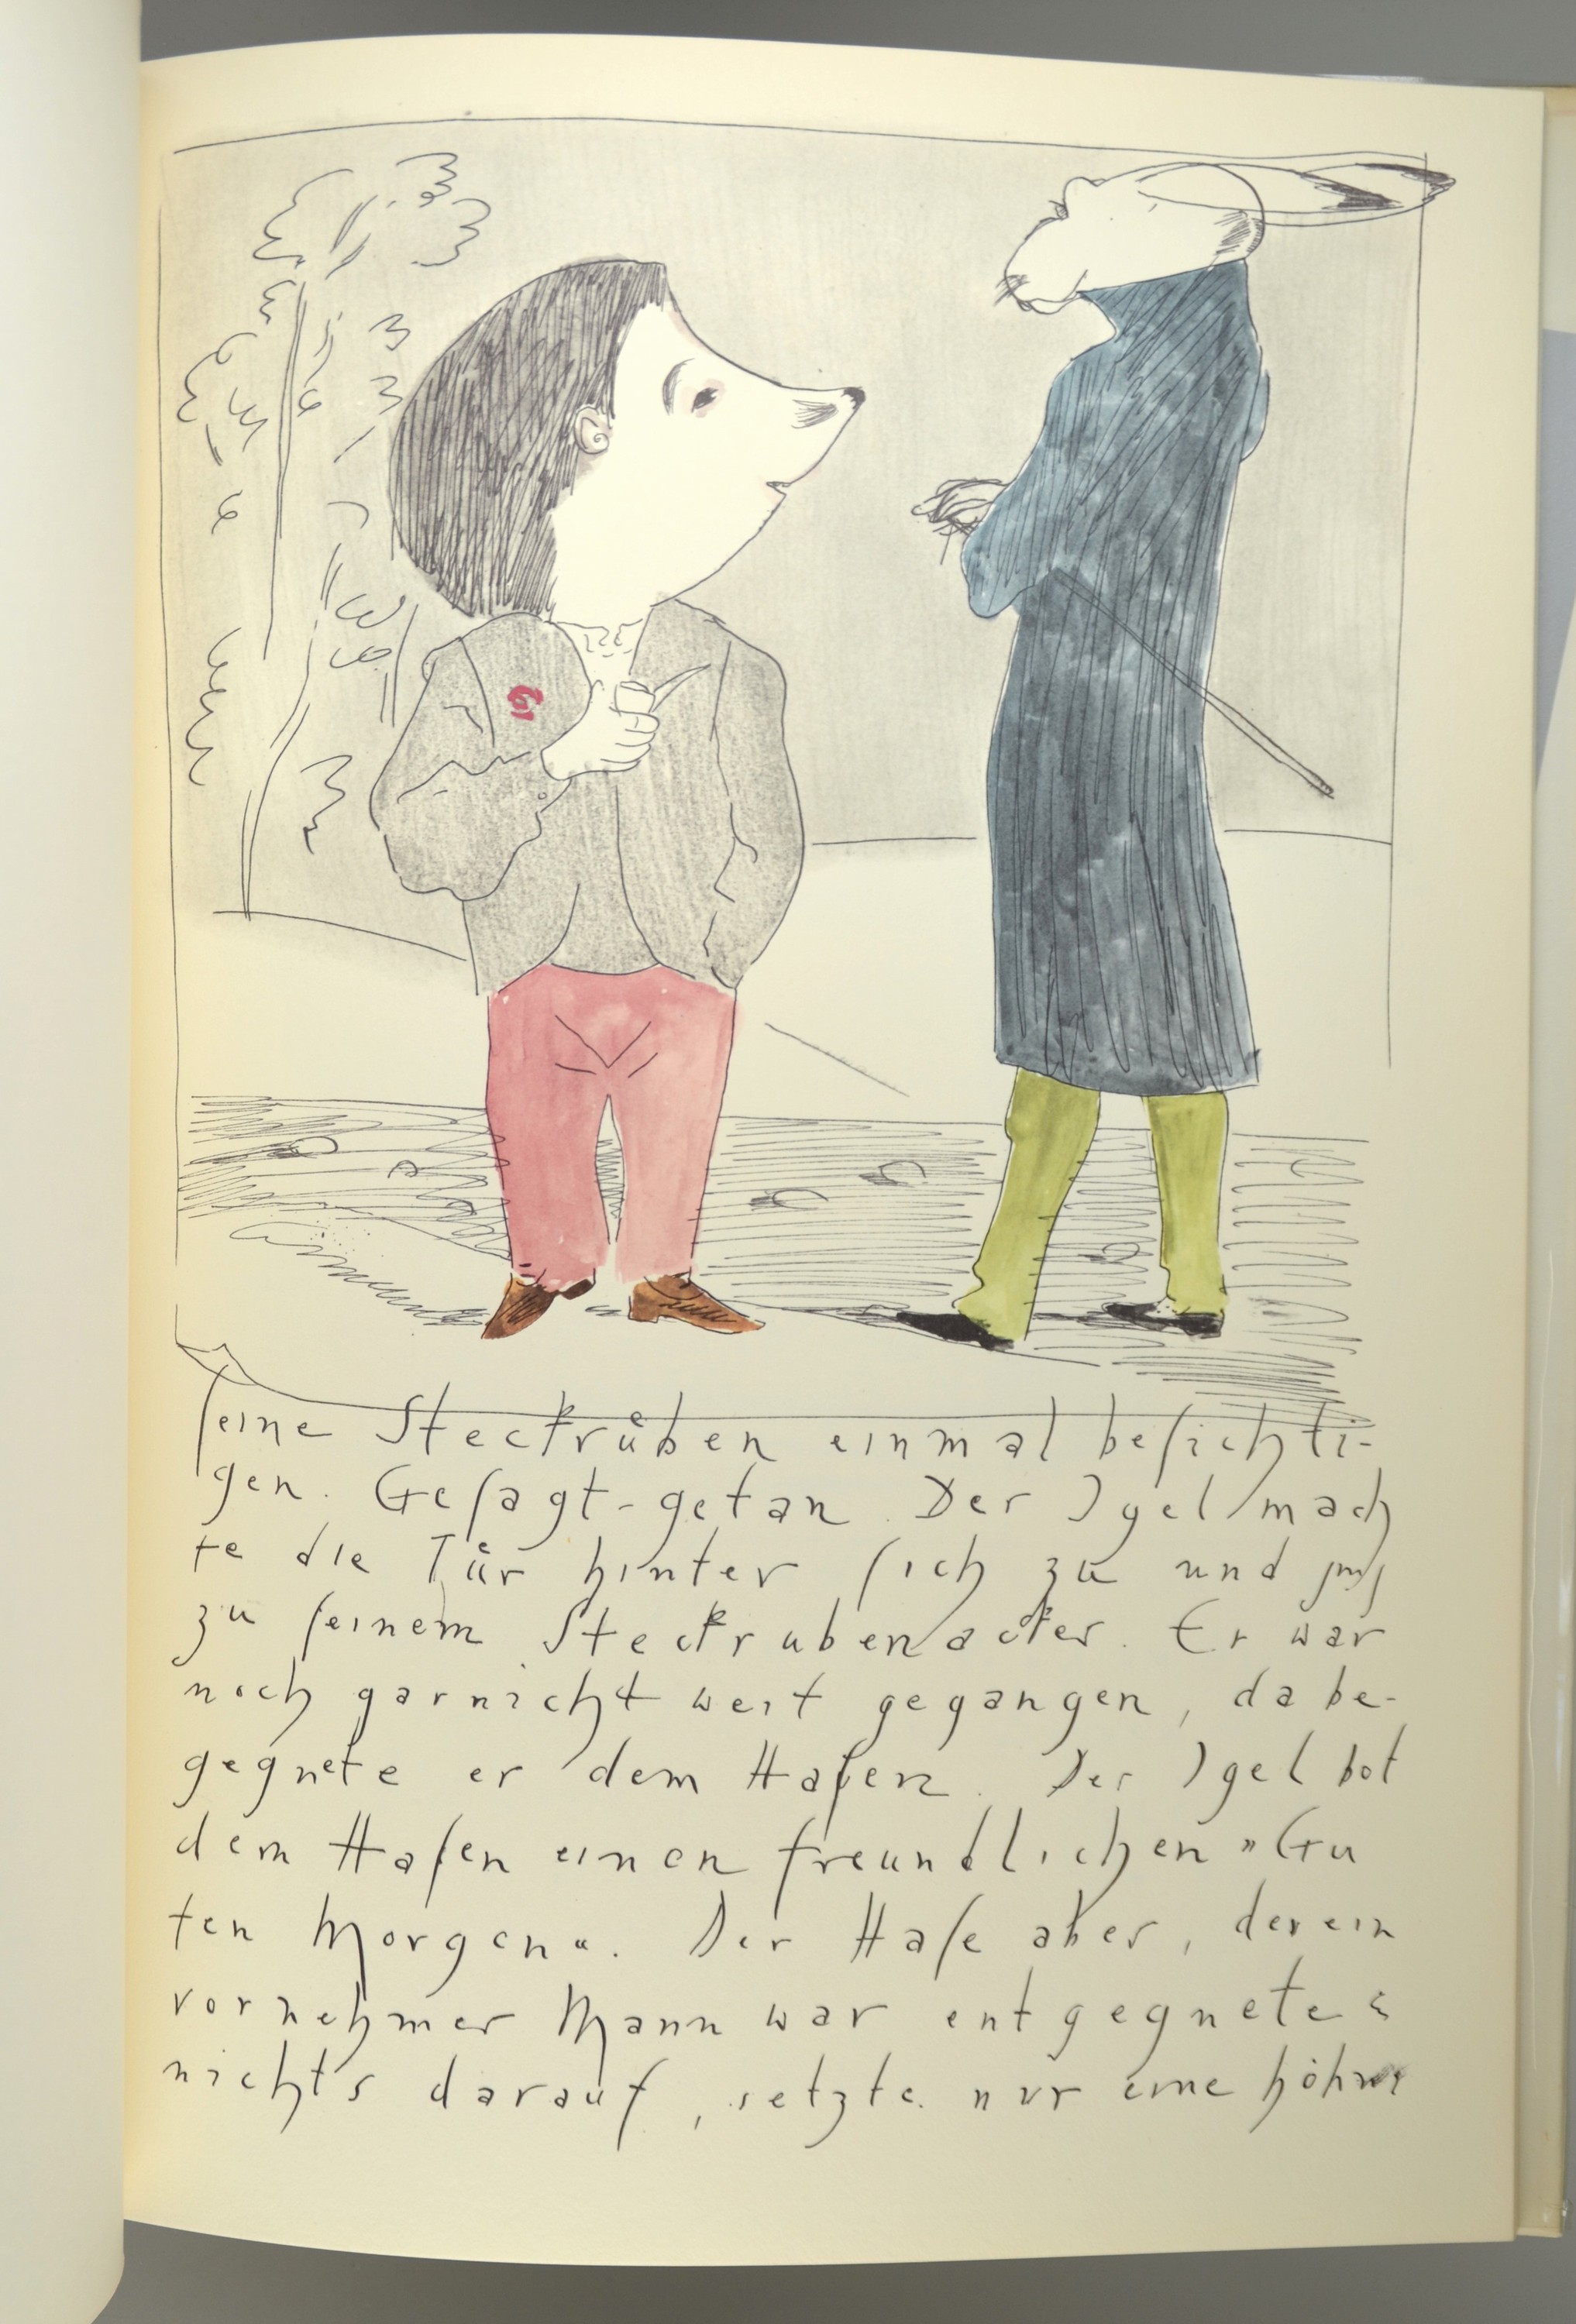 seine Steckrüben einmal besichti-
gen. Gesagt-getan. Der Igel mach
te die Tür hinter sich zu und ging
zu seinem Steckrubenacker. Er war
noch garnicht weit gegangen, da be-
gegnete er dem Hasen. Der Igel bot
dem Hasen einen freundlichen »Gu
ten Morgen«. Der Hase aber, der ein
vornehmer Mann war entgegnete
nichts darauf, setzte nur eine